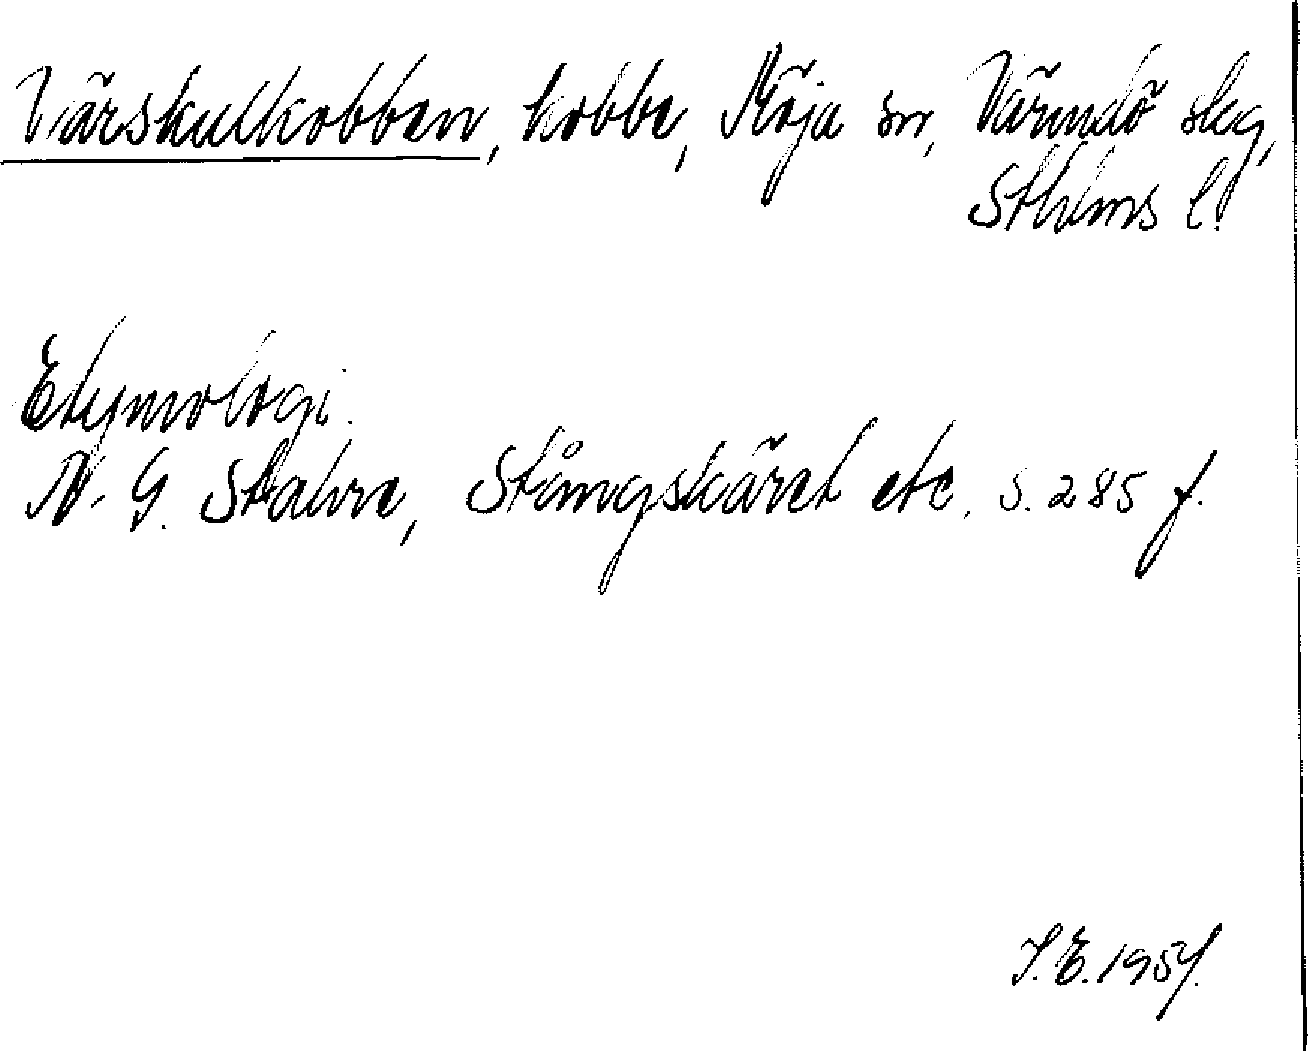 Värskulkobben, kobbe, Möja sn, Värmdö skg,
Sthlms l.
Etymologi.
N. G. Stahre, Stångskäret etc. s. 285 f.
S. E. 1957.